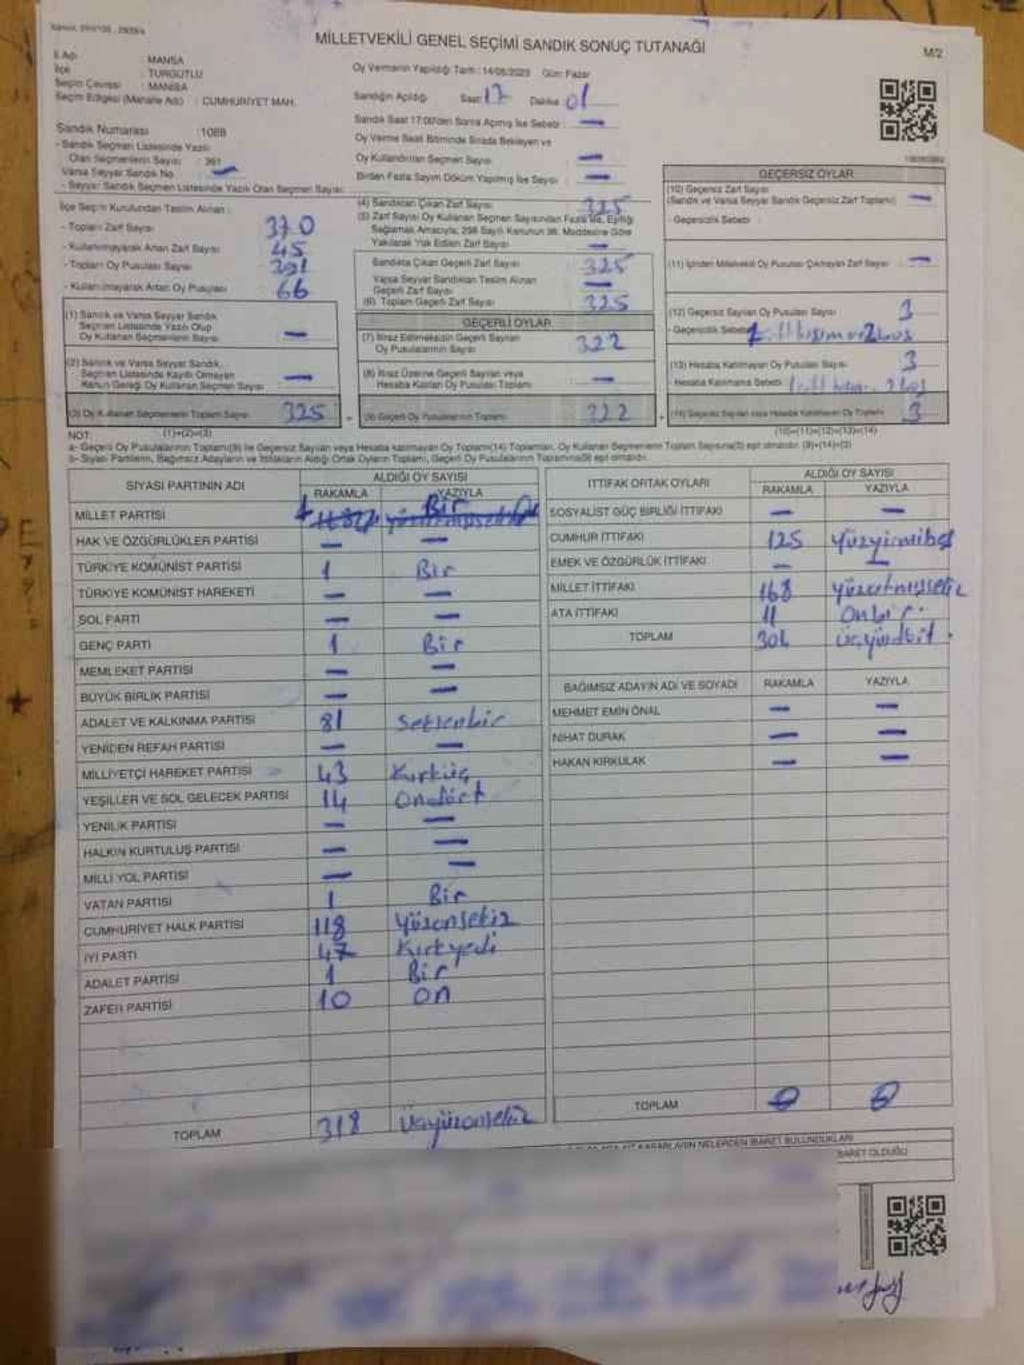 MİLLETVEKİLİ GENEL SEÇİMİ SANDIK SONUÇ TUTANAĞI
M/2
İl Adı : MANİSA
İlçe : TURGUTLU
Seçim Çevresi : MANİSA
Seçim Bölgesi (Mahalle Adı) : CUMHURİYET MAH.
Sandık Numarası : 1088
- Sandık Seçmen Listesinde Yazılı
Olan Seçmenlerin Sayısı : 361
Varsa Seyyar Sandık No —
- Seyyar Sandık Seçmen Listesinde Yazılı Olan Seçmen Sayısı:
Oy Vermenin Yapıldığı Tarih : 14/05/2023 Gün: Pazar
Sandığın Açıldığı Saat: 17 Dakika: 01
Sandık Saat 17:00'den Sonra Açılmış İse Sebebi : —
Oy Verme Saati Bitiminde Sırada Bekleyen ve
Oy Kullandırılan Seçmen Sayısı —
Birden Fazla Sayım Döküm Yapılmış İse Sayısı : —
İlçe Seçim Kurulundan Teslim Alınan :
- Toplam Zarf Sayısı 370
- Kullanılmayarak Artan Zarf Sayısı 45
- Toplam Oy Pusulası Sayısı 391
- Kullanılmayarak Artan Oy Pusulası 66
(1) Sandık ve Varsa Seyyar Sandık
Seçmen Listesinde Yazılı Olup
Oy Kullanan Seçmenlerin Sayısı —
(2) Sandık ve Varsa Seyyar Sandık,
Seçmen Listesinde Kaydı Olmayan
Kanun Gereği Oy Kullanan Seçmen Sayısı —
(3) Oy Kullanan Seçmenlerin Toplam Sayısı 325
(1)+(2)=(3)
(4) Sandıktan Çıkan Zarf Sayısı 325
(5) Zarf Sayısı Oy Kullanan Seçmen Sayısından Fazla ise, Eşitliği
Sağlamak Amacıyla; 298 Sayılı Kanunun 98. Maddesine Göre
Yakılarak Yok Edilen Zarf Sayısı —
Sandıkta Çıkan Geçerli Zarf Sayısı 325
Varsa Seyyar Sandıktan Teslim Alınan
Geçerli Zarf Sayısı —
(6) Toplam Geçerli Zarf Sayısı 325
GEÇERLİ OYLAR
(7) İtiraz Edilmeksizin Geçerli Sayılan
Oy Pusulalarının Sayısı 322
(8) İtiraz Üzerine Geçerli Sayılan veya
Hesaba Katılan Oy Pusulası Toplamı —
(9) Geçerli Oy Pusulalarının Toplamı 322
GEÇERSİZ OYLAR
(10) Geçersiz Zarf Sayısı
(Sandık ve Varsa Seyyar Sandık Geçersiz Zarf Toplamı) —
- Geçersizlik Sebebi :
(11) İçinden Milletvekili Oy Pusulası Çıkmayan Zarf Sayısı —
(12) Geçersiz Sayılan Oy Pusulası Sayısı 3
- Geçersizlik Sebebi
(13) Hesaba Katılmayan Oy Pusulası Sayısı 3
- Hesaba Katılmama Sebebi
(14) Geçersiz Sayılan veya Hesaba Katılmayan Oy Toplamı 3
(10)+(11)+(12)+(13)=(14)
NOT:
a- Geçerli Oy Pusulalarının Toplamı(9) ile Geçersiz Sayılan veya Hesaba katılmayan Oy Toplamı(14) Toplamları, Oy Kullanan Seçmenlerin Toplam Sayısına(3) eşit olmalıdır. (9)+(14)=(3)
b- Siyasi Partilerin, Bağımsız Adayların ve İttifakların Aldığı Ortak Oyların Toplamı, Geçerli Oy Pusulalarının Toplamına(9) eşit olmalıdır.
SİYASİ PARTİNİN ADI ALDIĞI OY SAYISI
RAKAMLA YAZIYLA
MİLLET PARTİSİ 1 Bir
HAK VE ÖZGÜRLÜKLER PARTİSİ — —
TÜRKİYE KOMÜNİST PARTİSİ 1 Bir
TÜRKİYE KOMÜNİST HAREKETİ — —
SOL PARTİ — —
GENÇ PARTİ 1 Bir
MEMLEKET PARTİSİ — —
BÜYÜK BİRLİK PARTİSİ — —
ADALET VE KALKINMA PARTİSİ 81 Seksenbir
YENİDEN REFAH PARTİSİ — —
MİLLİYETÇİ HAREKET PARTİSİ 43 Kırküç
YEŞİLLER VE SOL GELECEK PARTİSİ 14 Ondört
YENİLİK PARTİSİ — —
HALKIN KURTULUŞ PARTİSİ — —
MİLLİ YOL PARTİSİ — —
VATAN PARTİSİ 1 Bir
CUMHURİYET HALK PARTİSİ 118 Yüzonsekiz
İYİ PARTİ 47 Kırkyedi
ADALET PARTİSİ 1 Bir
ZAFER PARTİSİ 10 On
TOPLAM 318 Üçyüzonsekiz
İTTİFAK ORTAK OYLARI ALDIĞI OY SAYISI
RAKAMLA YAZIYLA
SOSYALİST GÜÇ BİRLİĞİ İTTİFAKI — —
CUMHUR İTTİFAKI 125 Yüzyirmibeş
EMEK VE ÖZGÜRLÜK İTTİFAKI — —
MİLLET İTTİFAKI 168 yüzaltmışsekiz
ATA İTTİFAKI 11 Onbir
TOPLAM 304 üçyüzdört
BAĞIMSIZ ADAYIN ADI VE SOYADI RAKAMLA YAZIYLA
MEHMET EMİN ÖNAL — —
NİHAT DURAK — —
HAKAN KIRKULAK — —
TOPLAM 0 0